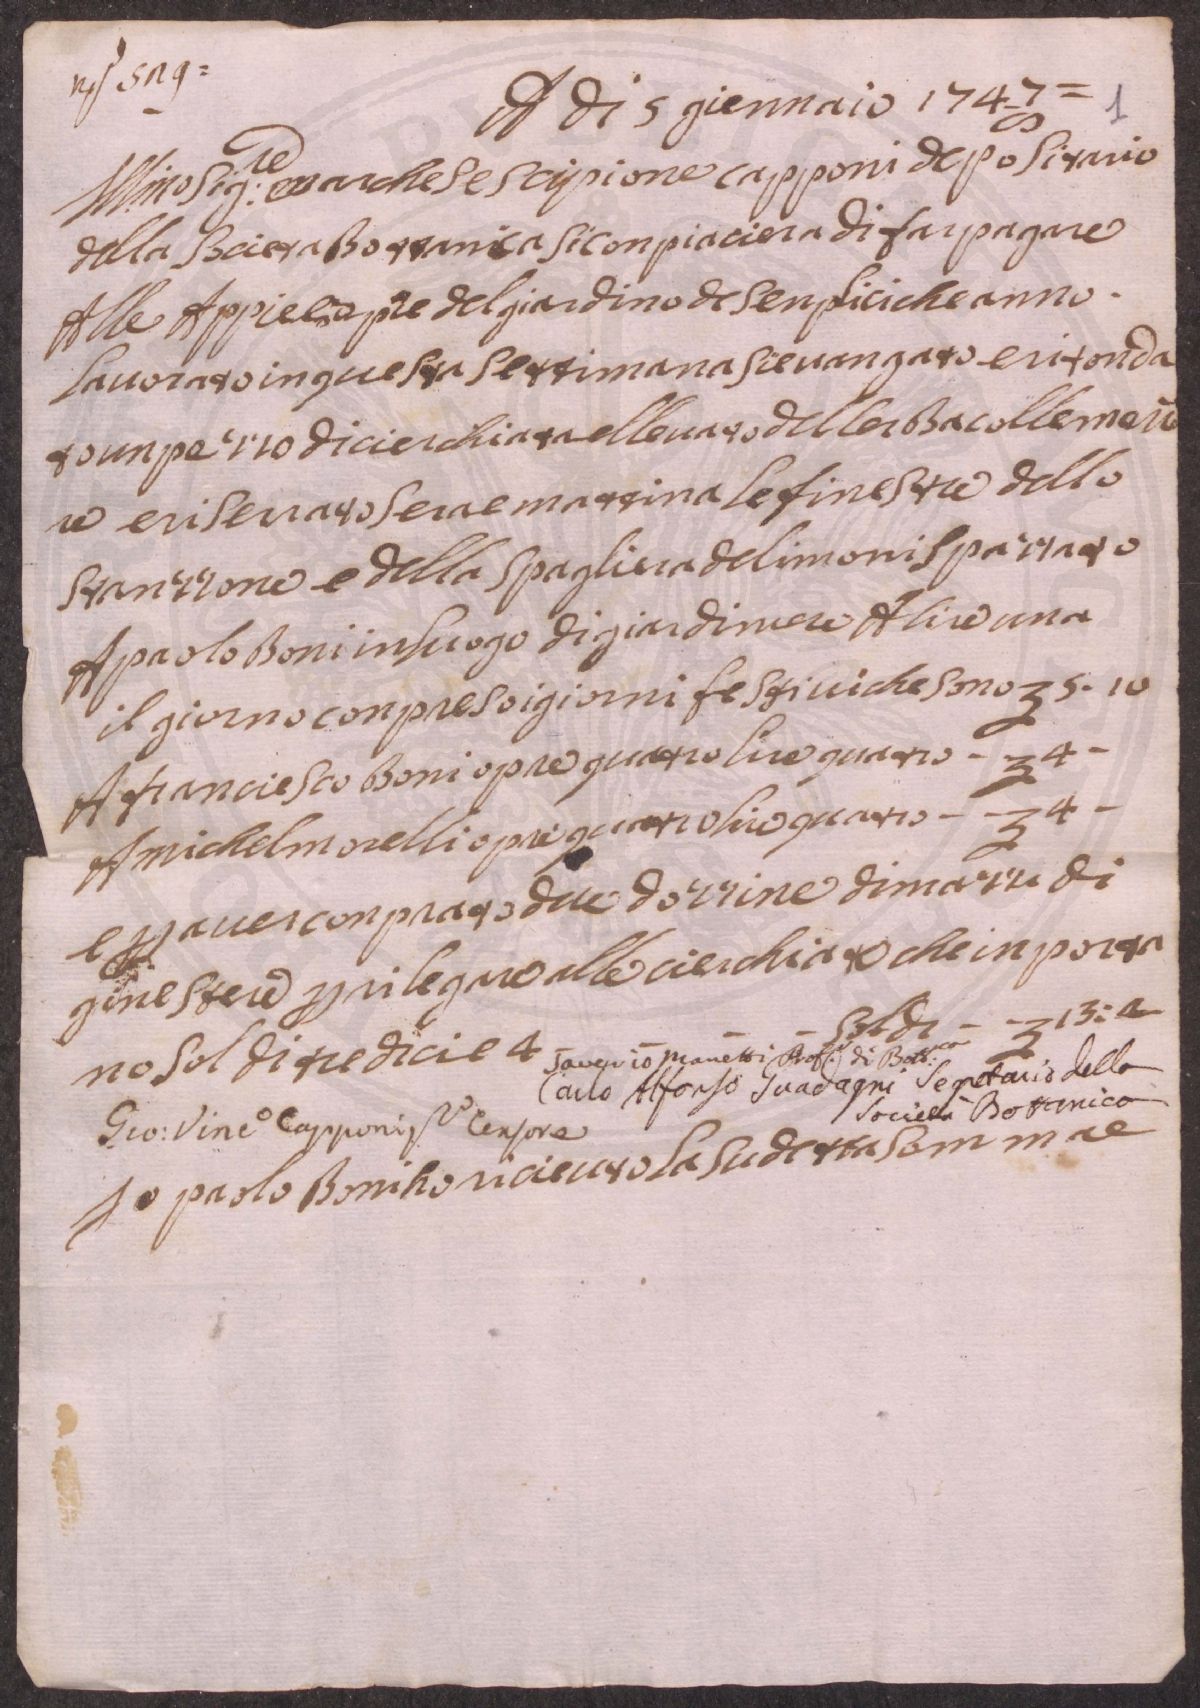 A di 5 giennaio 1747/8 =
1
Ill.mo Sig.re marchese scipione capponi depositario
della Scieta Bottanica si conpiaciera di far pagare
Alle Appie opre del giardino de senplici che anno
lauorato in questa settimana sie uangato e ritonda
to un pe'zzo di cierchiata elleuato dell erBa colle ma
re e riserrato sera e mattina le finestre dello
stan'zzone e della spagliera de limoni spa'zzato
A paolo Boni in luogo di giardinere A lire una
il giorno conpreso i giorni festiui che sono £ 5 - 10
A franciesco Boni opre quatro lire quatro - £ 4 -
A michel morelli opre quatro lire quatro - - £ 4 -
e p auer conprato due do'zzine di ma'zzi di
ginestere p rilegare alle cierchiate che inporta
no soldi tredici e 4 - - Soldi - - £ 13: 2
Saverio Manetti Prof.e di Bott.ca
Carlo Alfonso Guadagni Segretario della
Società Bottanica
Gio: Vinc.o Capponi Censore
Io paolo Boni ho riceuto la sudetta somma e